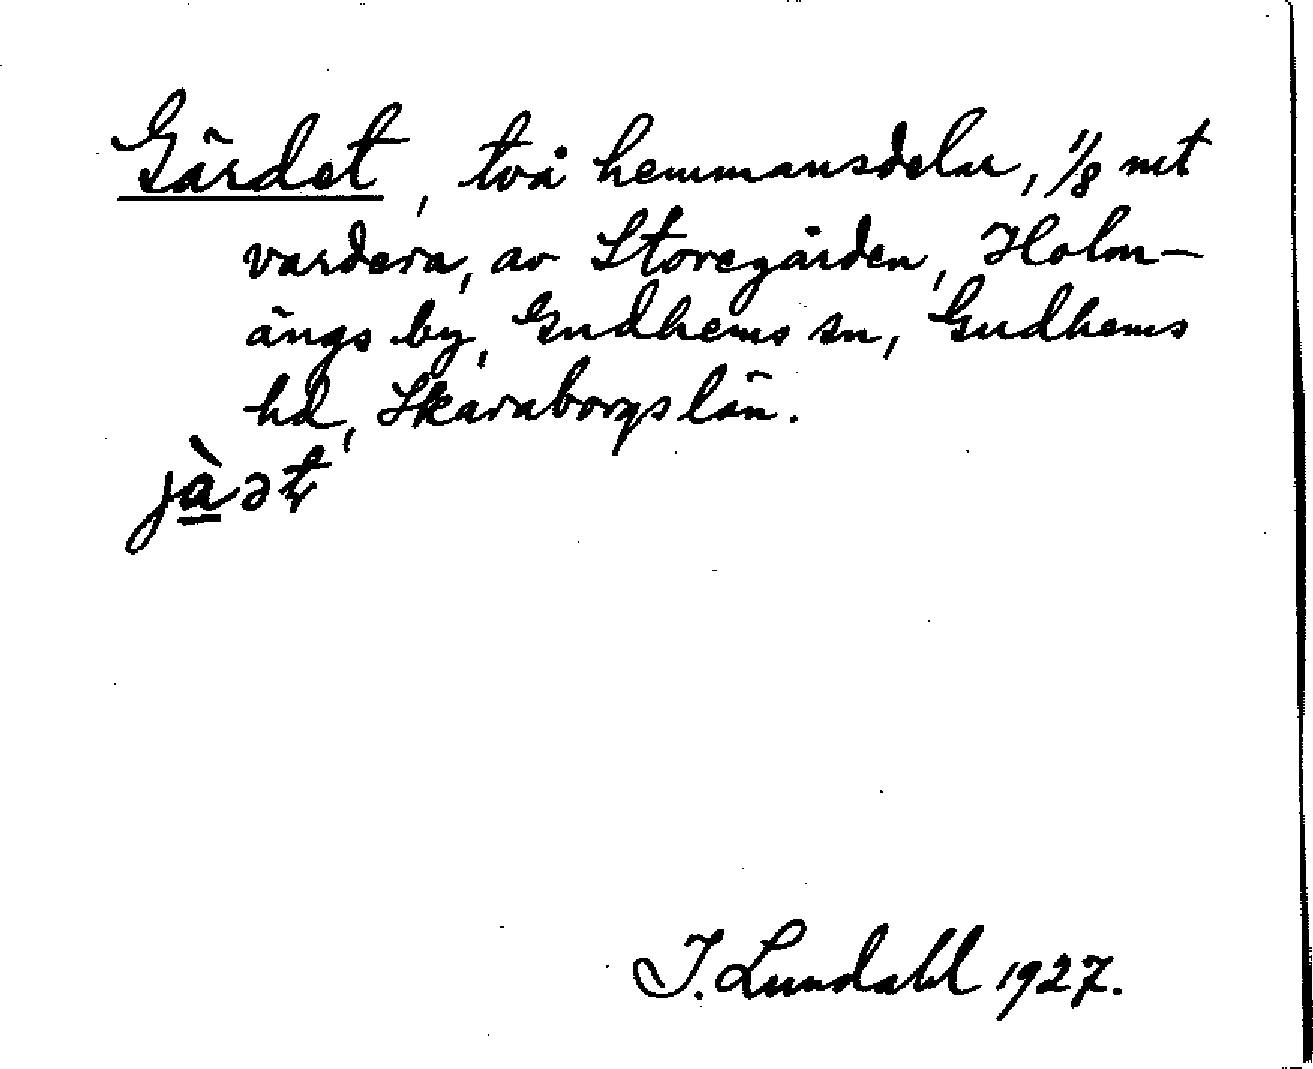 Gärdet, två hemmansdelar, 1/8 mt
vardera, av Storegården, Holm-
ängs by, Gudhems sn, Gudhems
hd, Skaraborgs län.
jà̱ət
I. Lundahl 1927.